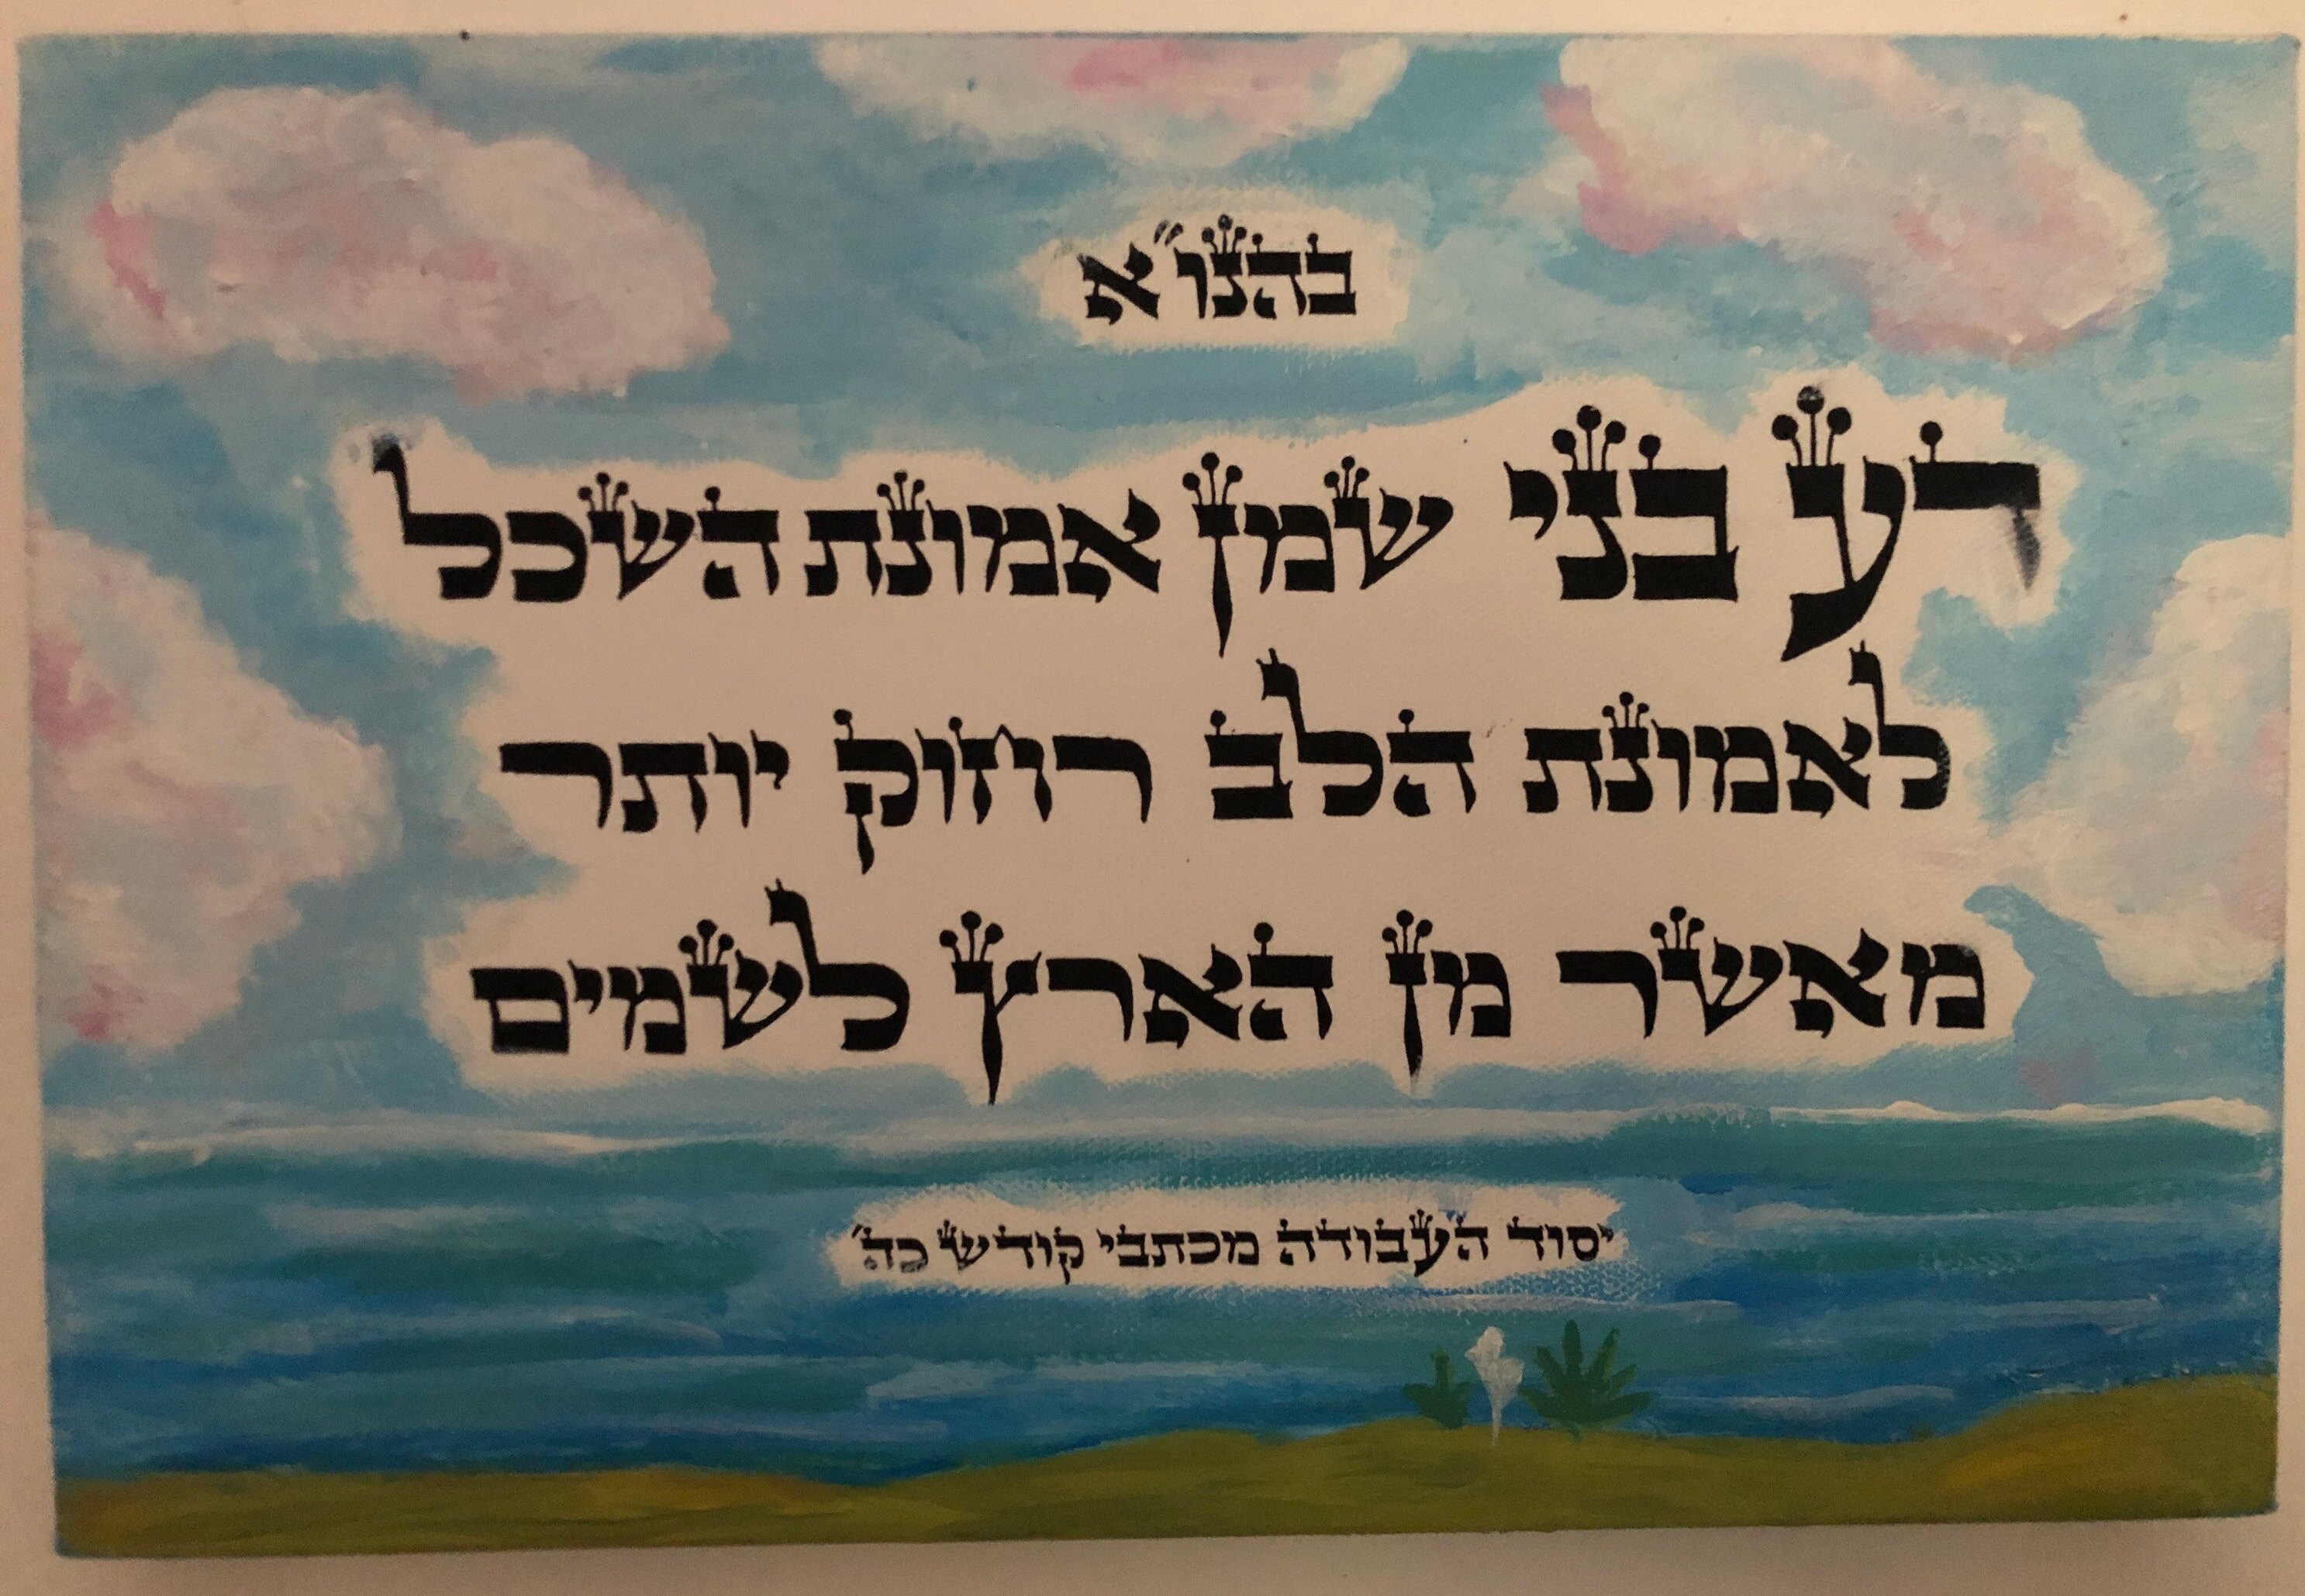 בהנו״א
דע בני שמן אמונת השכל
לאמונת הלב רחוק יותר
מאשר מן הארץ לשמים
יסוד העבודה מכתבי קודש כה׳